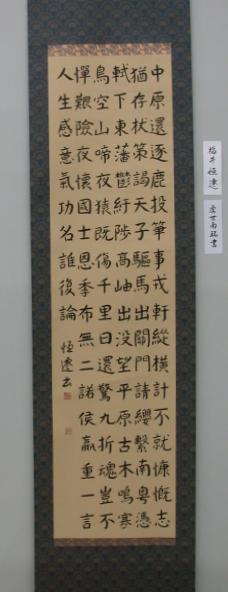 中原還逐鹿投筆事戎軒縱橫計不就慷慨志
猶存杖策謁天子驅馬出關門請纓繫南粤憑
軾下東藩鬱紆陟高岫出没望平原古木鳴寒
鳥空山啼夜猿既傷千里目還驚九折魂豈不
憚艱險夜懷國士恩季布無二諾侯嬴重一言
人生感意氣功名誰復論